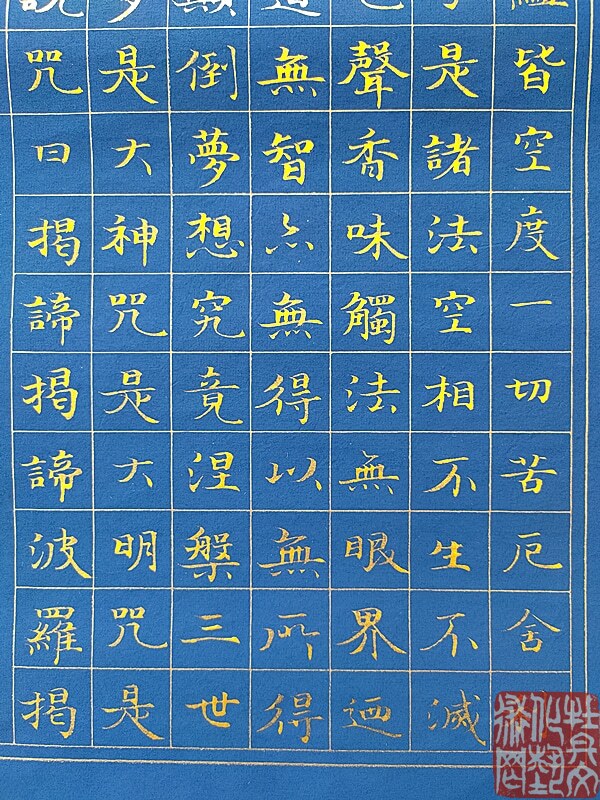 皆空度一切苦厄舍
是諸法空相不生不滅
聲香味觸法無眼界迺
無智亦無得以無所得
顛倒夢想究竟涅槃三世
多是大神咒是大明咒是
說咒曰揭諦揭諦波羅揭